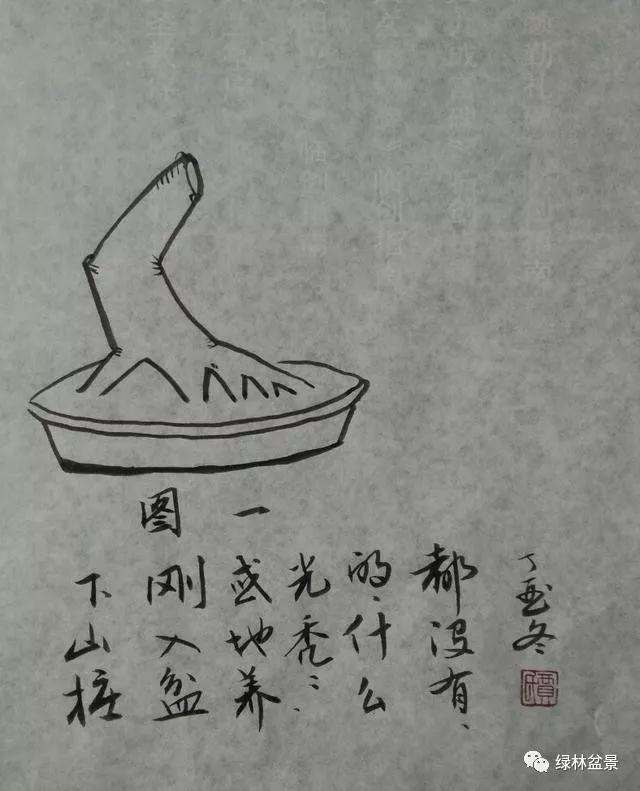 图 一
下山桩
刚入盆
或地养
光秃〻
的、什么
都没有、
丁酉冬
绿林盆景